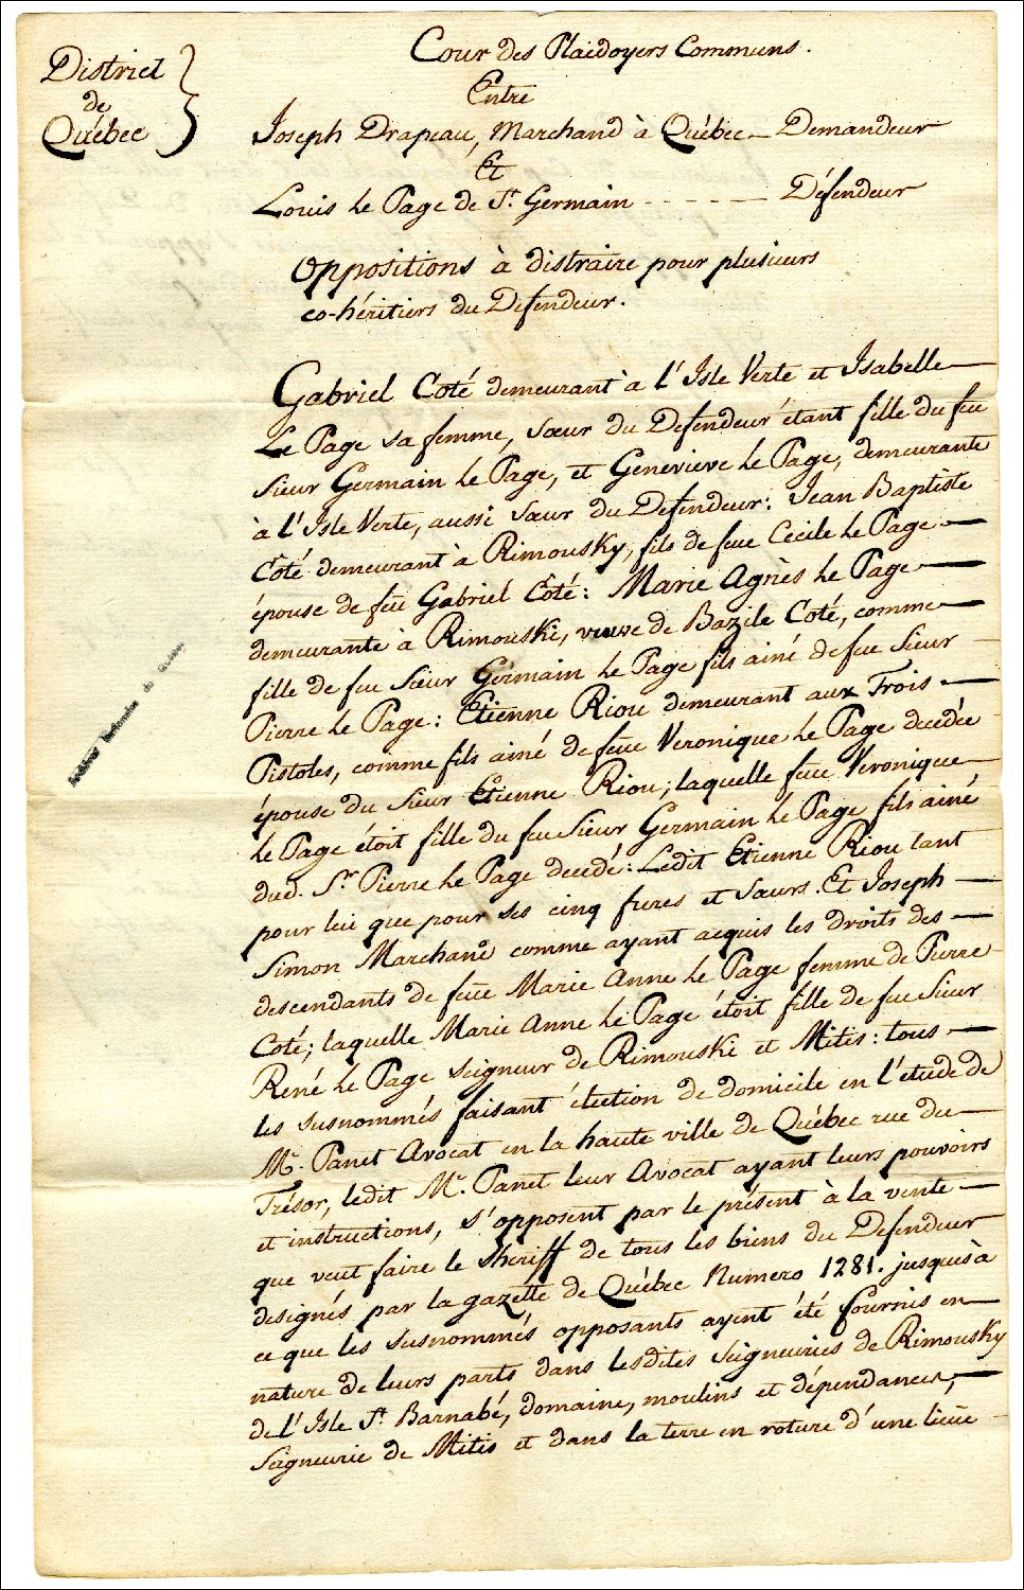 Cour des Plaidoyers Communs.
District
de
Québec
Entre
Joseph Drapeau, Marchand à Québec — Demandeur
Et
Louis Le Page de St. Germain - - - - — Défendeur
Oppositions à distraire pour plusieurs
co-héritiers du Défendeur.
Gabriel Coté demeurant à l'Isle Verte et Isabelle —
Le Page sa femme, sœur du Defendeur étant fille du feu
Sieur Germain Le Page, et Genevieve Le Page, demeurante
à l'Isle Verte, aussi Sœur du Defendeur: Jean Baptiste
Côté demeurant à Rimousky, fils de feue Cecile Le Page —
épouse de feu Gabriel Côté: Marie Agnès Le Page —
demeurante à Rimouski, veuve de Bazile Coté, comme —
fille de feu Sieur Germain Le Page fils ainé de feu Sieur —
Pierre Le Page: Etienne Riou demeurant aux Trois —
Pistoles, comme fils ainé de feüe Veronique Le Page decedée
épouse du Sieur Etienne Riou; laquelle feüe Veronique —
Le Page étoit fille du feu Sieur Germain Le Page fils ainé
dud. Sr. Pierre Le Page decedé: Ledit Etienne Riou tant
pour lui que pour ses cinq freres et Sœurs. Et Joseph —
Simon Marchand comme ayant acquis les droits des —
descendants de feüe Marie Anne Le Page femme de Pierre —
Coté; laquelle Marie Anne Le Page étoit fille de feu Sieur
René Le Page Seigneur de Rimouski et Mitis: tous —
les susnommés faisant élection de domicile en l'etude de
Mr. Panet Avocat en la haute ville de Québec rue du —
Trésor, ledit Mr. Panet leur Avocat ayant leurs pouvoirs
et instructions, s'opposent par le présent à la vente —
que veut faire le Sheriff de tous les biens du Defendeur
designés par la gazette de Québec Numero 1281. jusqu'à
ce que les susnommés opposants ayent été fournis en —
nature de leurs parts dans lesdites Seigneuries de Rimousky
de l'Isle St. Barnabé, domaine, moulins et dépendances, —
Seigneurie de Mitis et dans la terre en roture d'une lieüe —